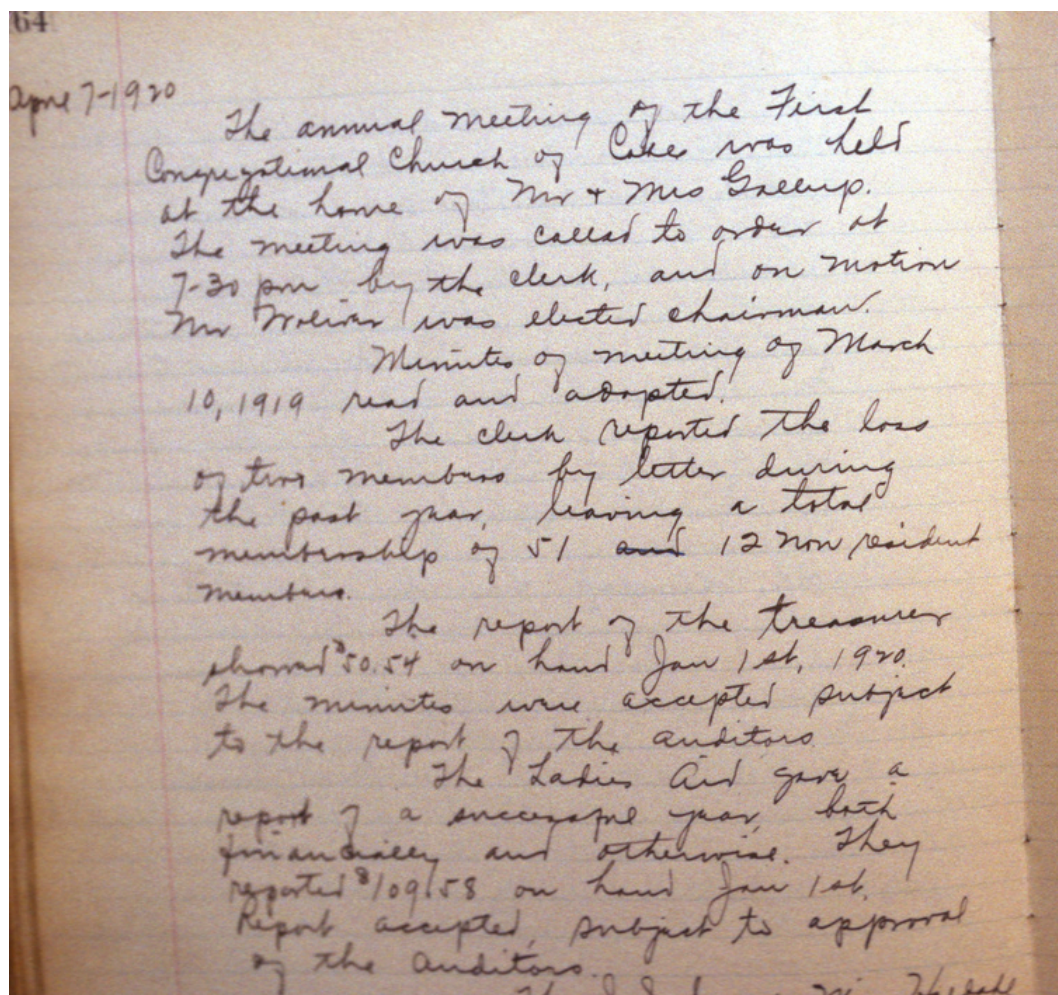 64
April 7-1920
The annual meeting of the First
Congregational Church of was held
at the home of Mr + Mrs Gallup.
The meeting was called to order at
7-30 pm by the clerk, and on motion
Mr was elected chairman.
Minutes of meeting of March
10, 1919 read and adopted.
The clerk reported the loss
of two members by letter during
the past year, leaving a total
membership of 51 and 12 non resident
members.
The report of the treasurer
showed $50.54 on hand Jan 1st, 1920.
The minutes were accepted subject
to the report of the auditors
The Ladies Aid gave a
report of a successful year, both
financially and otherwise. They
reported $109.58 on hand Jan 1st.
Report accepted, subject to approval
of the auditors.